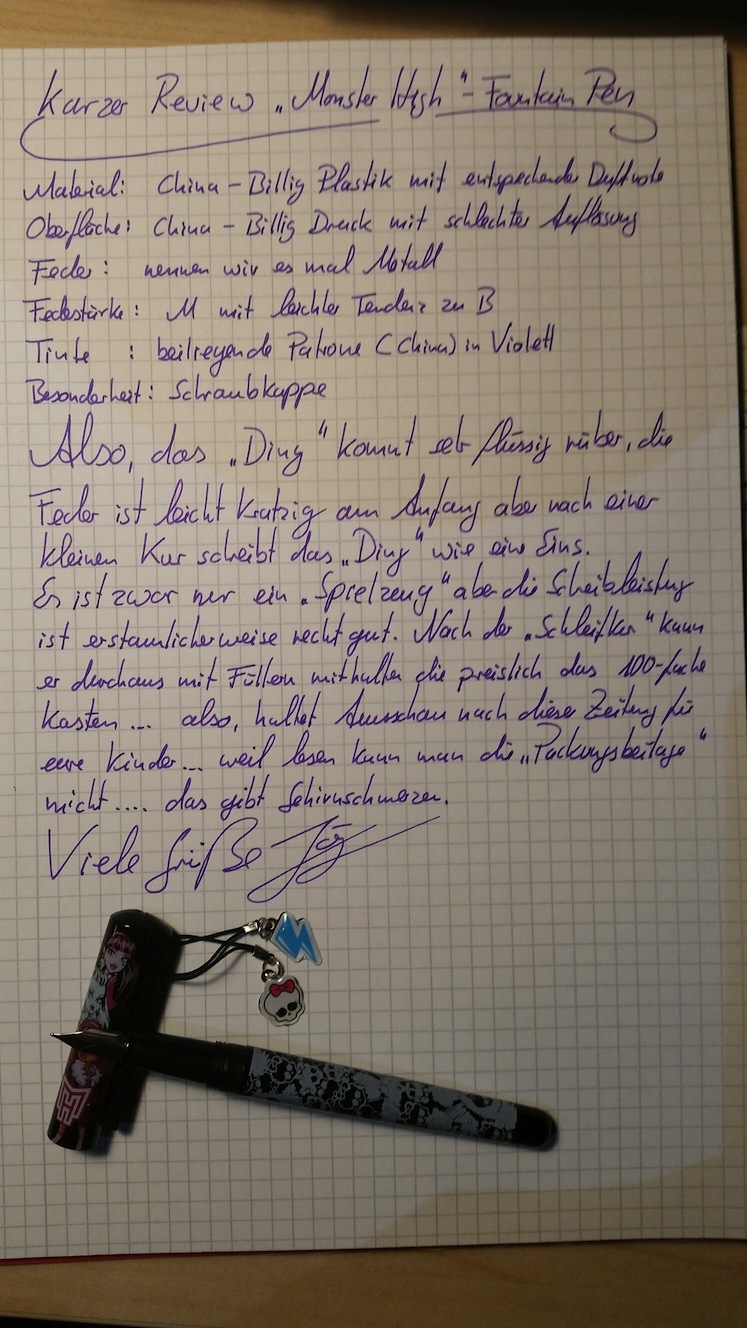 Kurzer Review „Monster High“ - Fountain Pen
Material: China - Billig Plastik mit entsprechender Duftnote
Oberfläche: China - Billig Druck mit schlechter Auflösung
Feder: nennen wir es mal Metall
Federstärke: M mit leichter Tendenz zu B
Tinte : beiliegende Patrone (China) in Violett
Besonderheit: Schraubkappe
Also, das „Ding“ kommt sehr flüssig rüber, die
Feder ist leicht kratzig am Anfang aber nach einer
kleinen Kur schreibt das „Ding“ wie eine Eins.
Es ist zwar nur ein „Spielzeug“ aber die Schreibleistung
ist erstaunlicherweise recht gut. Nach der „Schleifkur“ kann
er durchaus mit Füllern mithalten die preislich das 100-fache
kosten... also, haltet Ausschau nach dieser Zeitung für
eure Kinder... weil lesen kann man die „Packungsbeilage“
nicht.... das gibt Gehirnschmerzen.
Viele Grüße Jörg